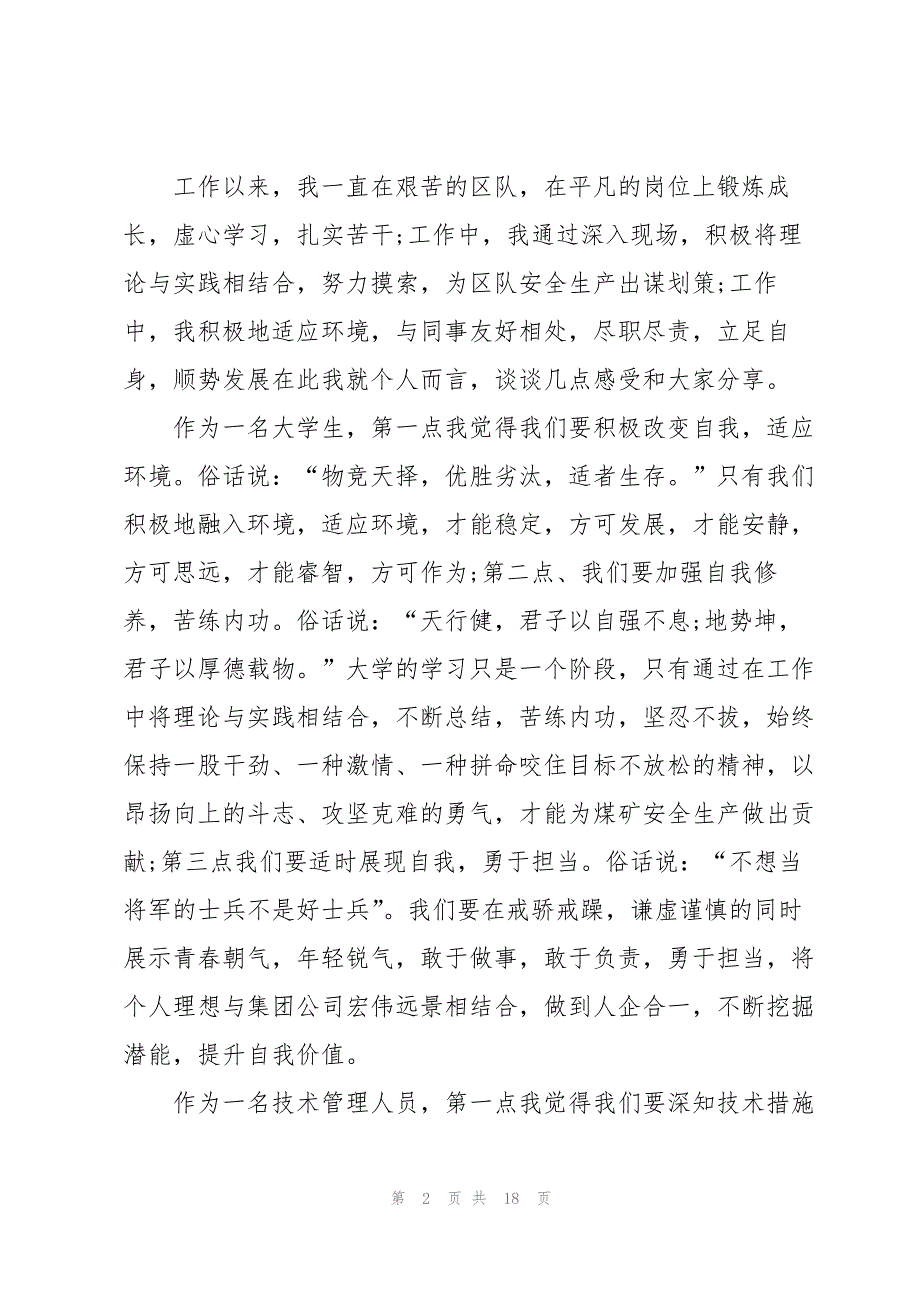 工作以来，我一直在艰苦的区队，在平凡的岗位上锻炼成
长，虚心学习，扎实苦干;工作中，我通过深入现场，积极将理
论与实践相结合，努力摸索，为区队安全生产出谋划策;工作
中，我积极地适应环境，与同事友好相处，尽职尽责，立足自
身，顺势发展在此我就个人而言，谈谈几点感受和大家分享。
作为一名大学生，第一点我觉得我们要积极改变自我，适应
环境。俗话说：“物竞天择，优胜劣汰，适者生存。”只有我们
积极地融入环境，适应环境，才能稳定，方可发展，才能安静，
方可思远，才能睿智，方可作为;第二点、我们要加强自我修
养，苦练内功。俗话说：“天行健，君子以自强不息;地势坤，
君子以厚德载物。”大学的学习只是一个阶段，只有通过在工作
中将理论与实践相结合，不断总结，苦练内功，坚忍不拔，始终
保持一股干劲、一种激情、一种拼命咬住目标不放松的精神，以
昂扬向上的斗志、攻坚克难的勇气，才能为煤矿安全生产做出贡
献;第三点我们要适时展现自我，勇于担当。俗话说：“不想当
将军的士兵不是好士兵”。我们要在戒骄戒躁，谦虚谨慎的同时
展示青春朝气，年轻锐气，敢于做事，敢于负责，勇于担当，将
个人理想与集团公司宏伟远景相结合，做到人企合一，不断挖掘
潜能，提升自我价值。
作为一名技术管理人员，第一点我觉得我们要深知技术措施
第 2 页 共 18 页